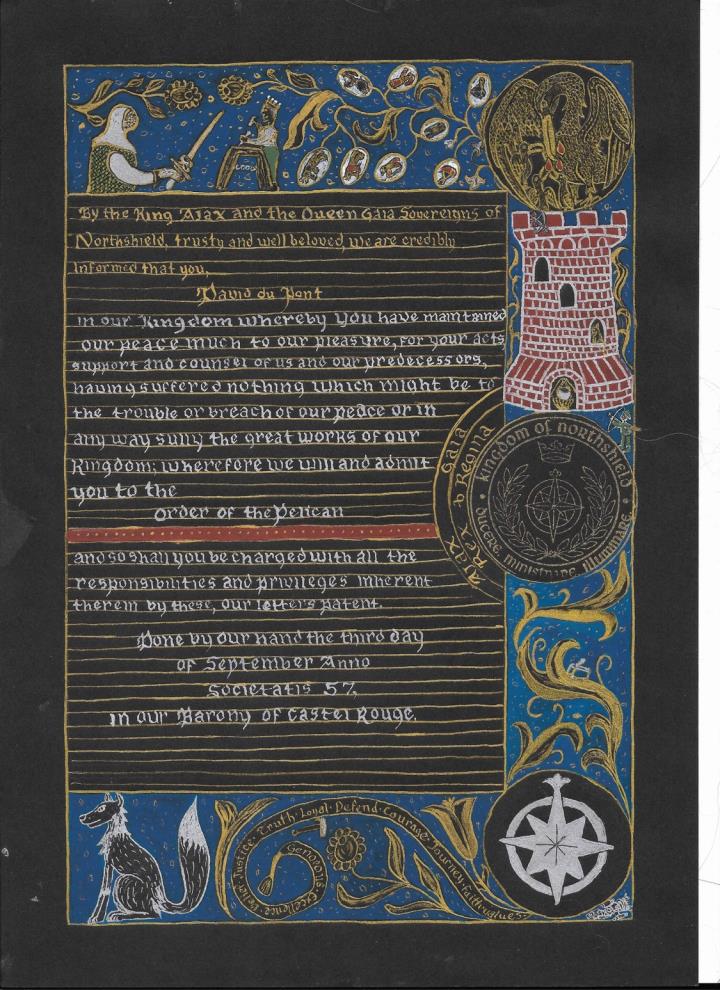 By the King Ajax and the Queen Gaia Sovereigns of
Northshield, trusty and well beloved, we are credibly
informed that you,
David du Pont
in our Kingdom whereby you have maintained
our peace much to our pleasure, for your acts
support and counsel of us and our predecessors,
having suffered nothing which might be to
the trouble or breach of our peace or in
any way sully the great works of our
Kingdom; wherefore we will and admit
you to the
Order of the Pelican
and so shall you be charged with all the
responsibilities and privileges inherent
therein by these, our letters patent.
Done by our hand the third day
of September Anno
Societatis 57,
in our Barony of Castel Rouge.
Ajax Gaia
Rex & Regina
Kingdom of Northshield
Ducere Ministrare Illuminare
Excellence Justice Truth Loyal Defend Courage Journey Faith